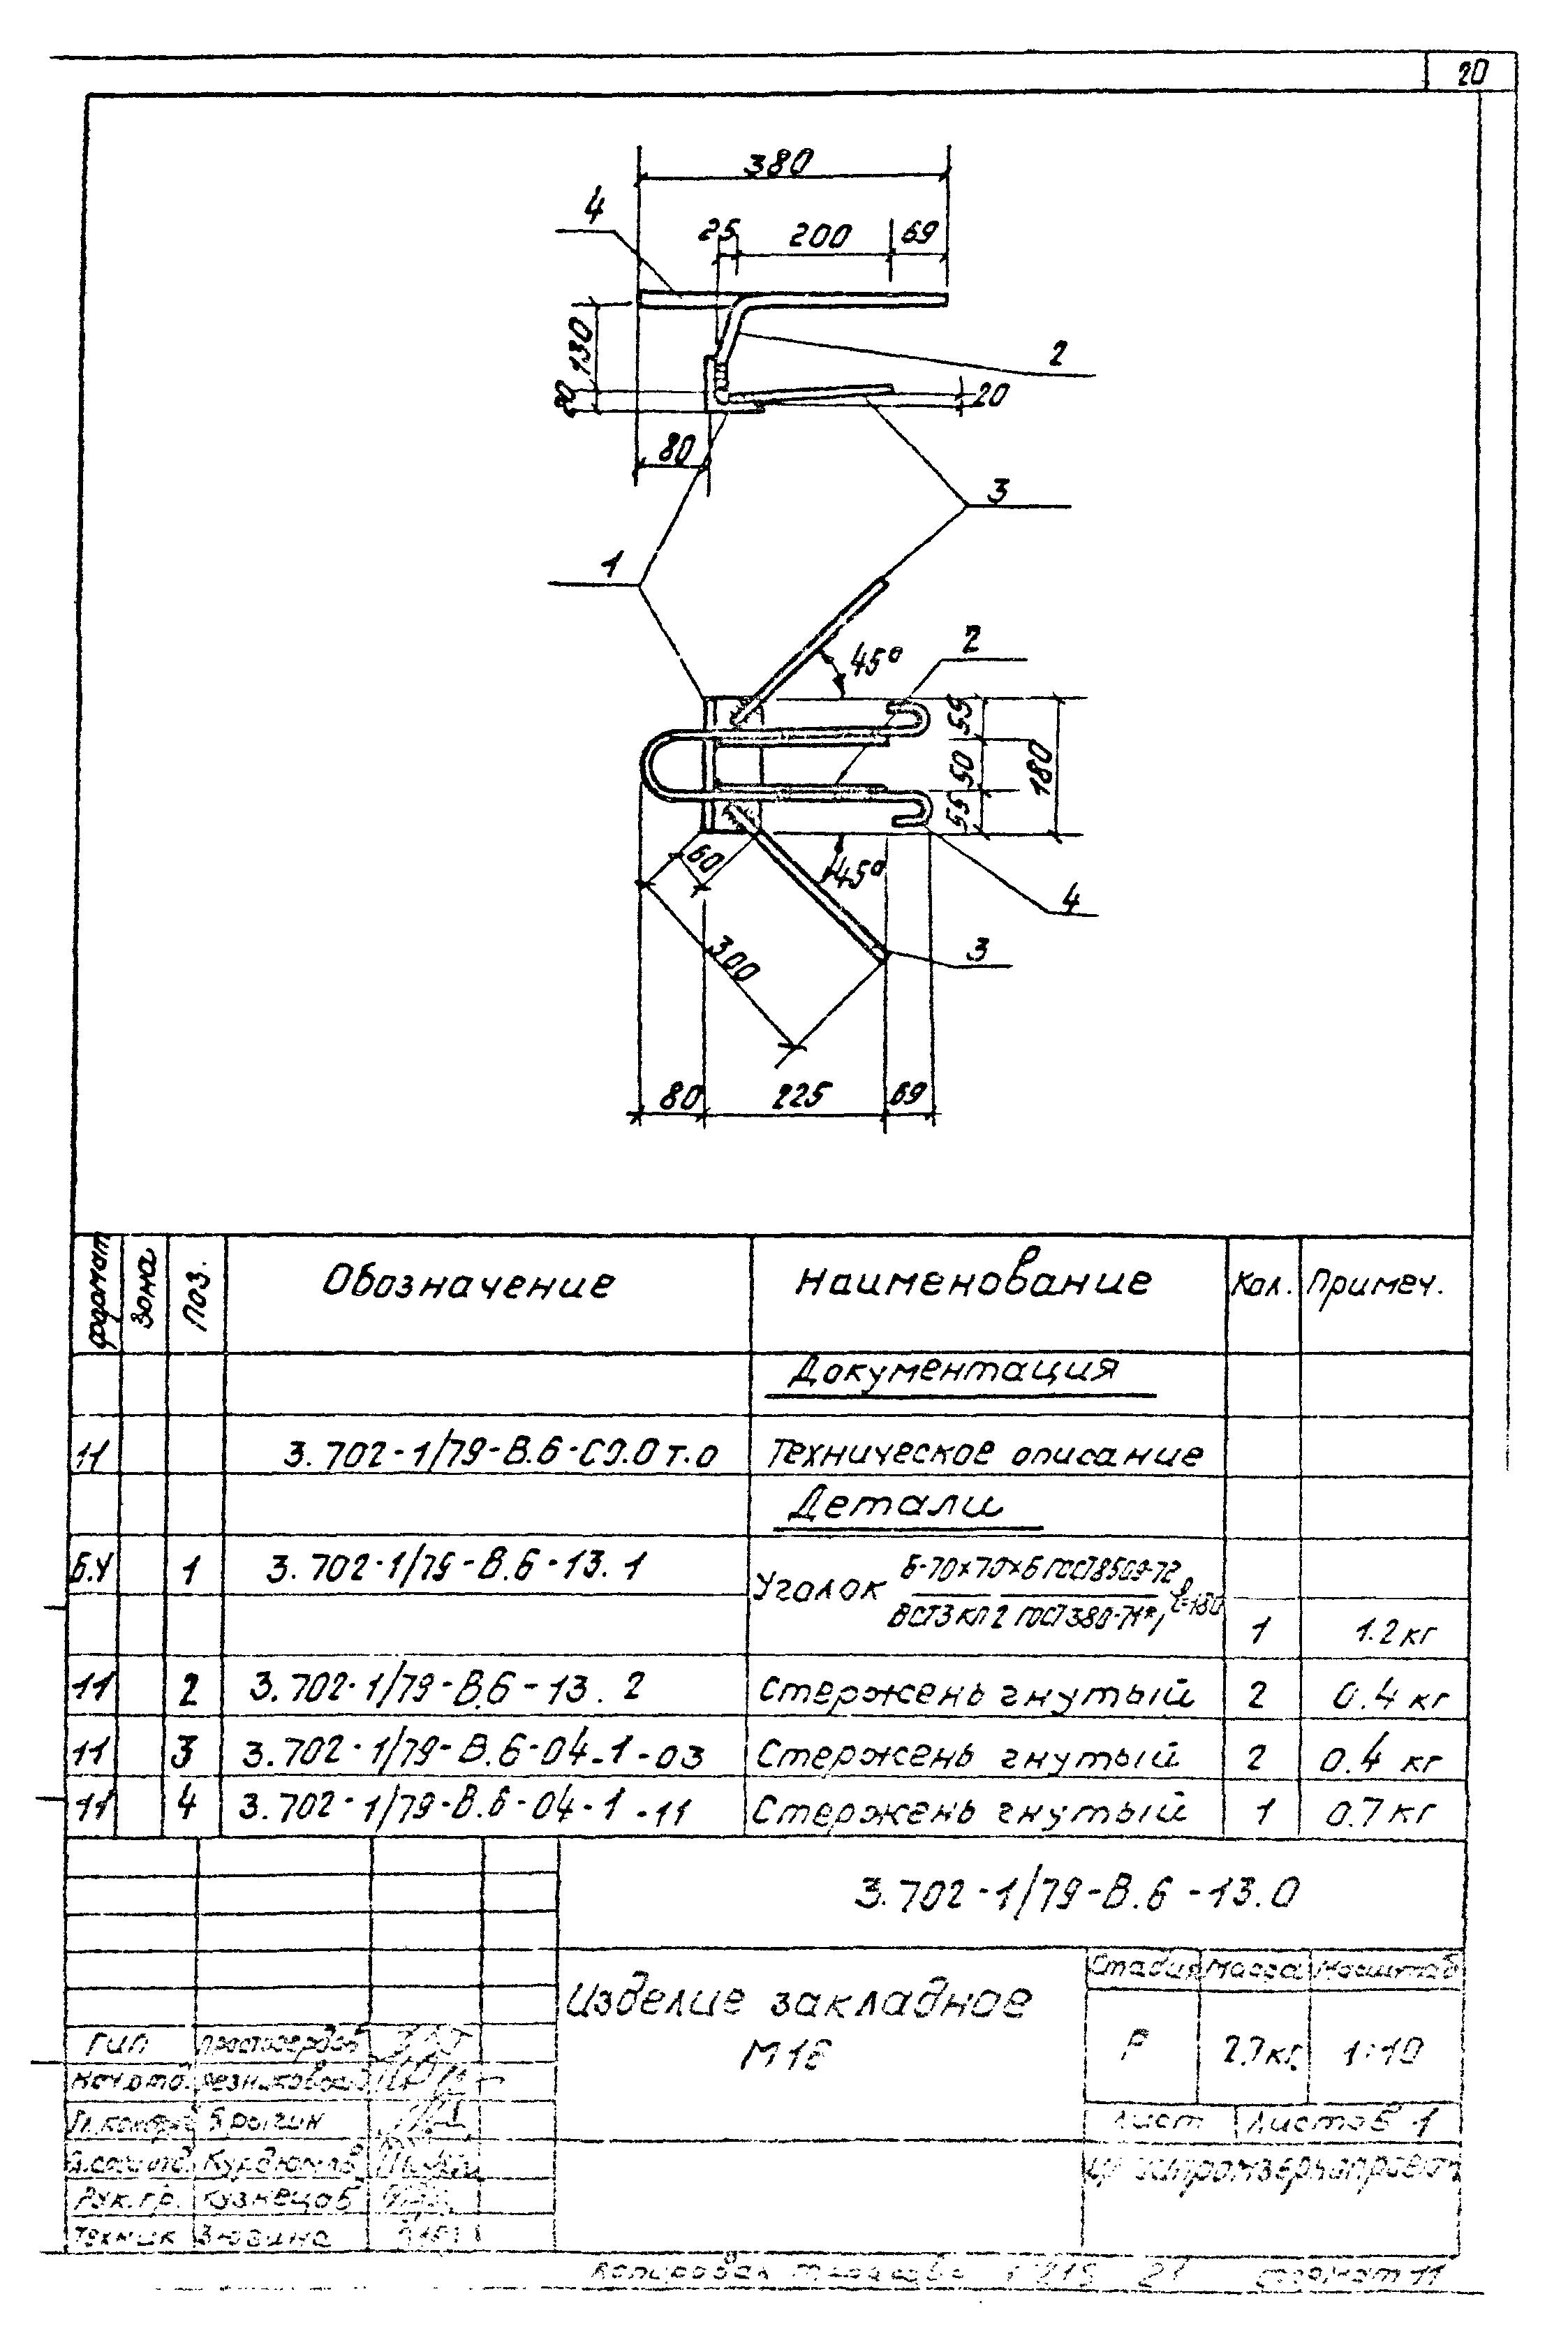 20
380
4
25 200 69
130
20
2
20
80
3
1
45°
2
55
50
180
55
60
45°
4
300
3
80 225 69
Формат Зона Поз. Обозначение Наименование Кол. Примеч.
Документация
11 3.702-1/79-В.6-00.0 т.о Техническое описание
Детали
Б.Ч 1 3.702-1/79-В.6-13.1 Уголок Б-70х70х6 ГОСТ 8509-72
ВСТ3 КП2 ГОСТ 380-71*, ℓ-180 1 1.2 кг
11 2 3.702-1/79-В.6-13.2 Стержень гнутый 2 0.4 кг
11 3 3.702-1/79-В.6-04-1-03 Стержень гнутый 2 0.4 кг
11 4 3.702-1/79-В.6-04-1-11 Стержень гнутый 1 0.7 кг
3.702-1/79-В.6-13.0
Изделие закладное
Стадия Масса Масштаб
Р 2.7кг. 1:10
Лист Листов 1
ГИП
Нач.отд.
Брыгин
Рук.гр. Кузнецов
Техник Зюзина
Копировал формат 11